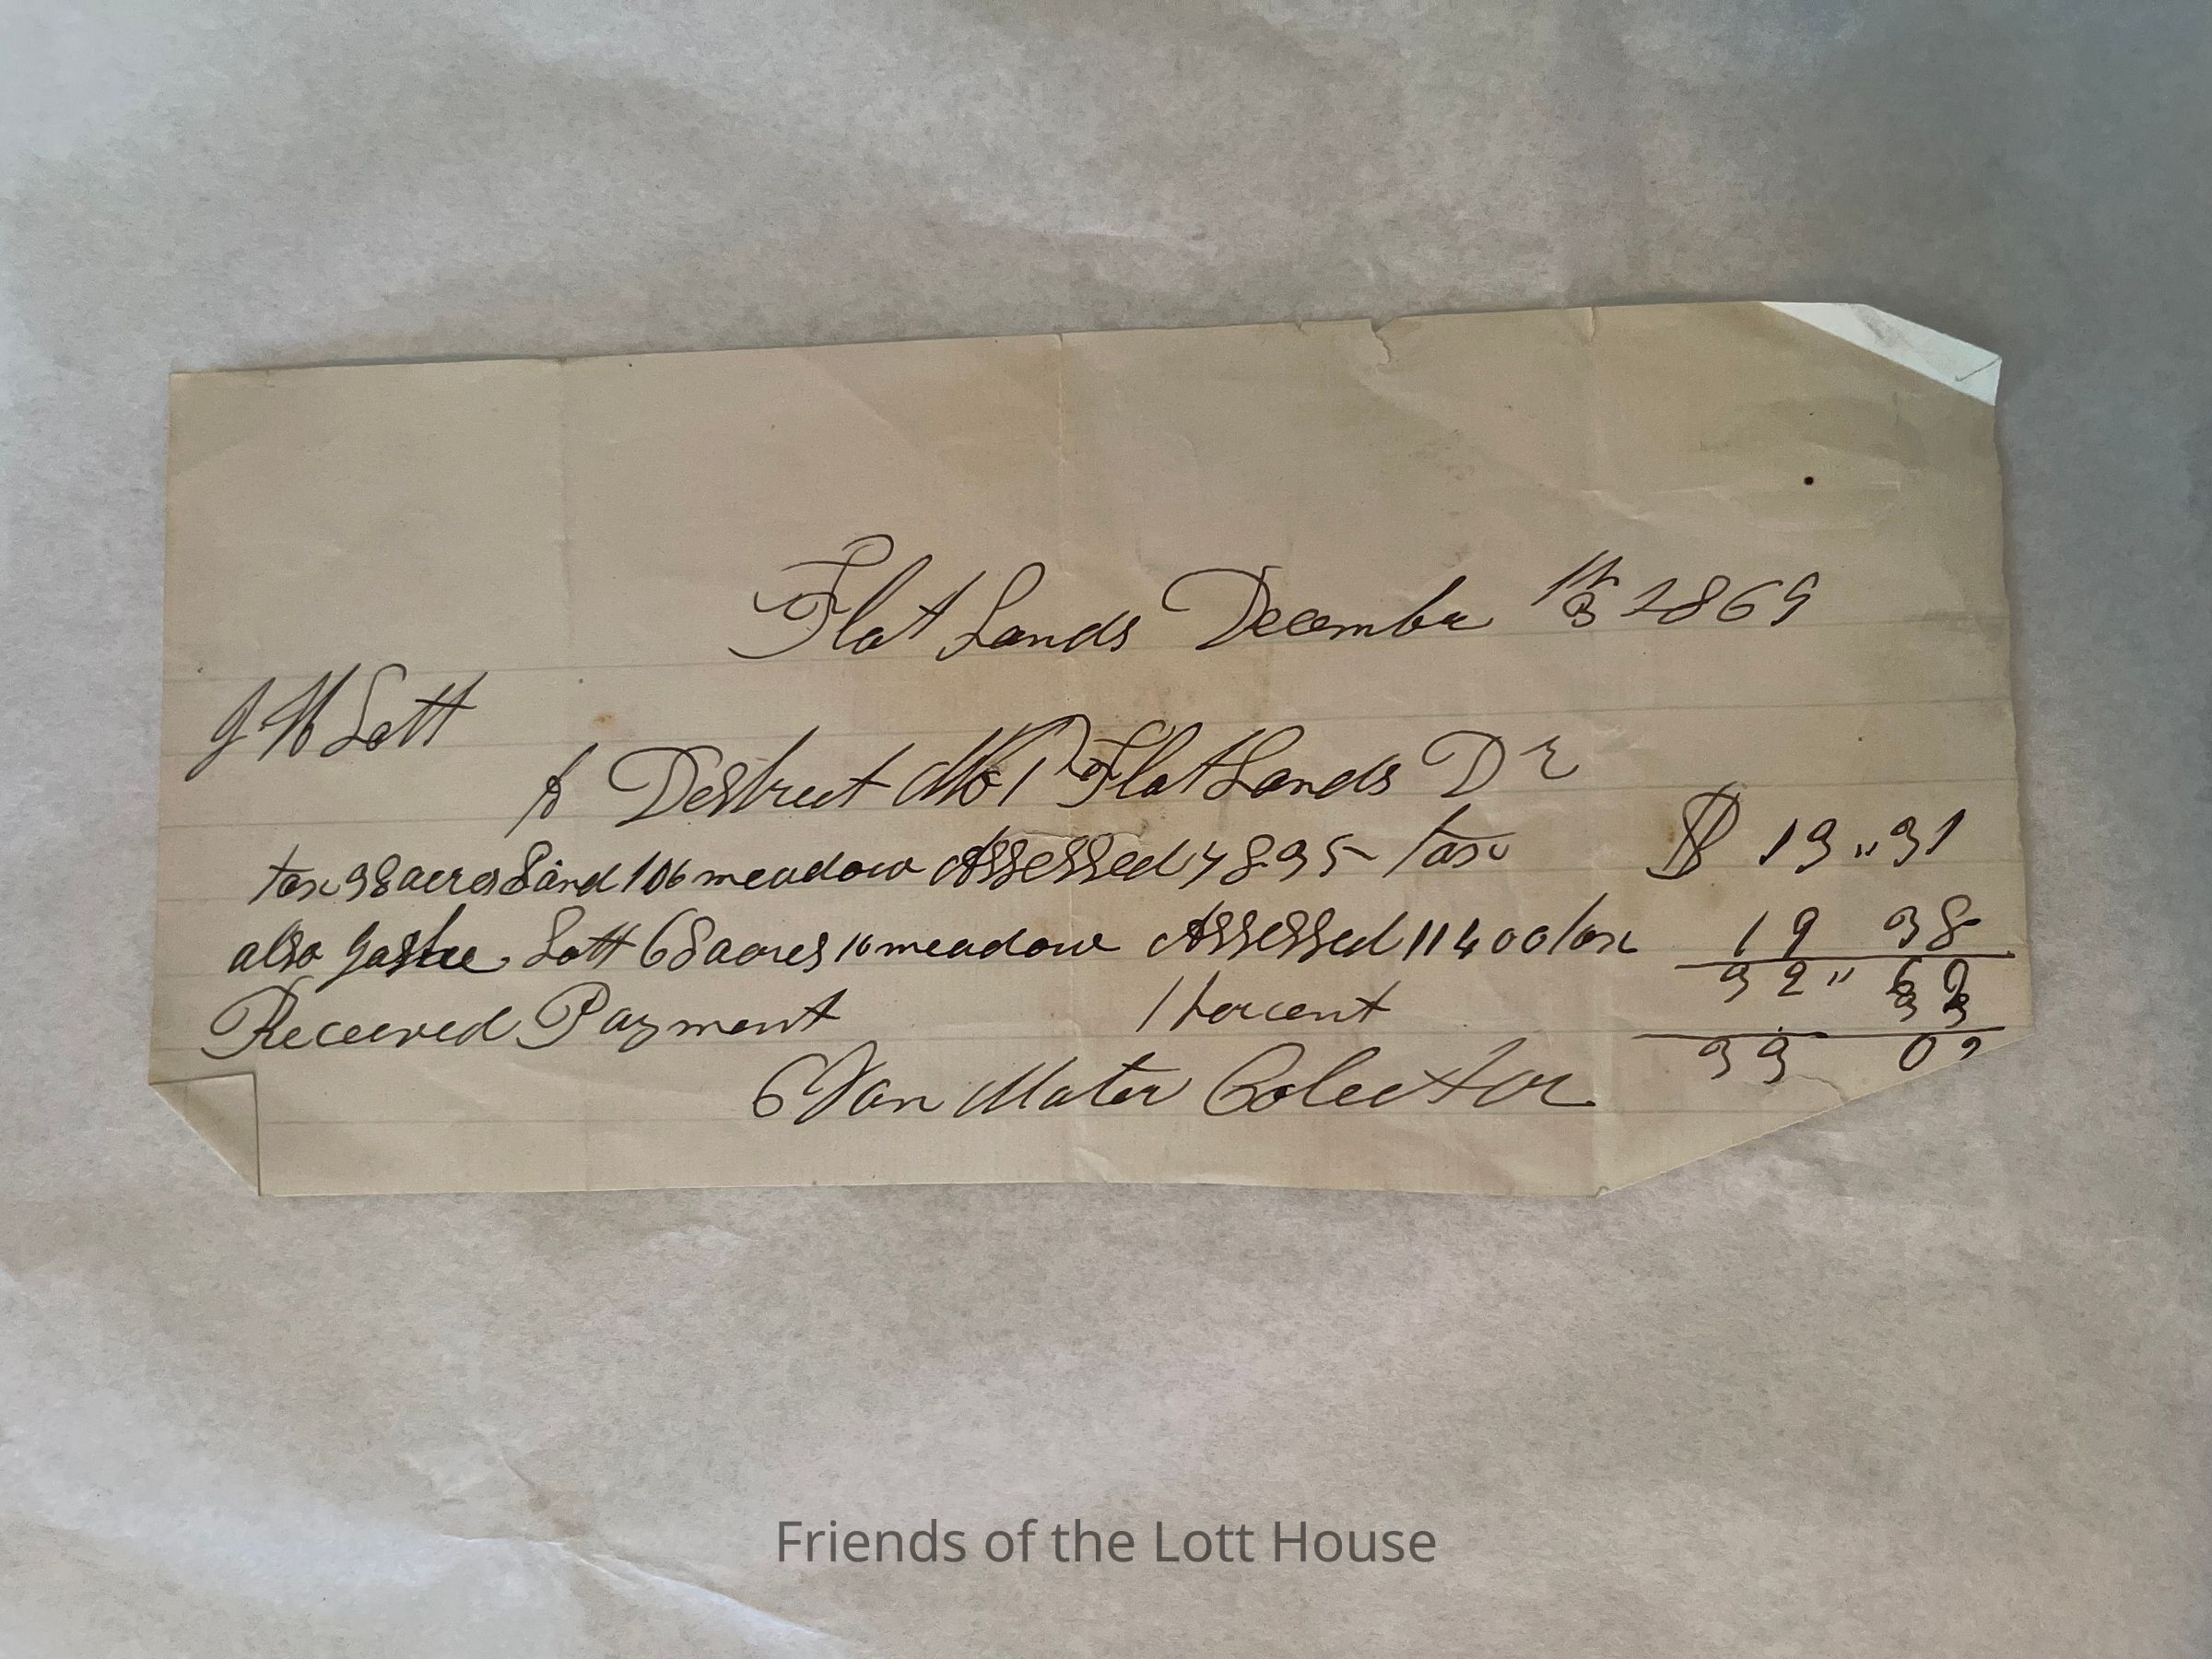 Flat Lands December 1869
J H Lott
to Destrict No 1 Flat Lands Dr
tax 38 acres Land 106 meadow Assessed 7835 tax $ 13 " 31
also Lott 68 acres 10 meadow Assessed 11400 tax 19 38
32 " 69
Received Payment 1 percent 33
33 02
C Van Mater Colector
Friends of the Lott House